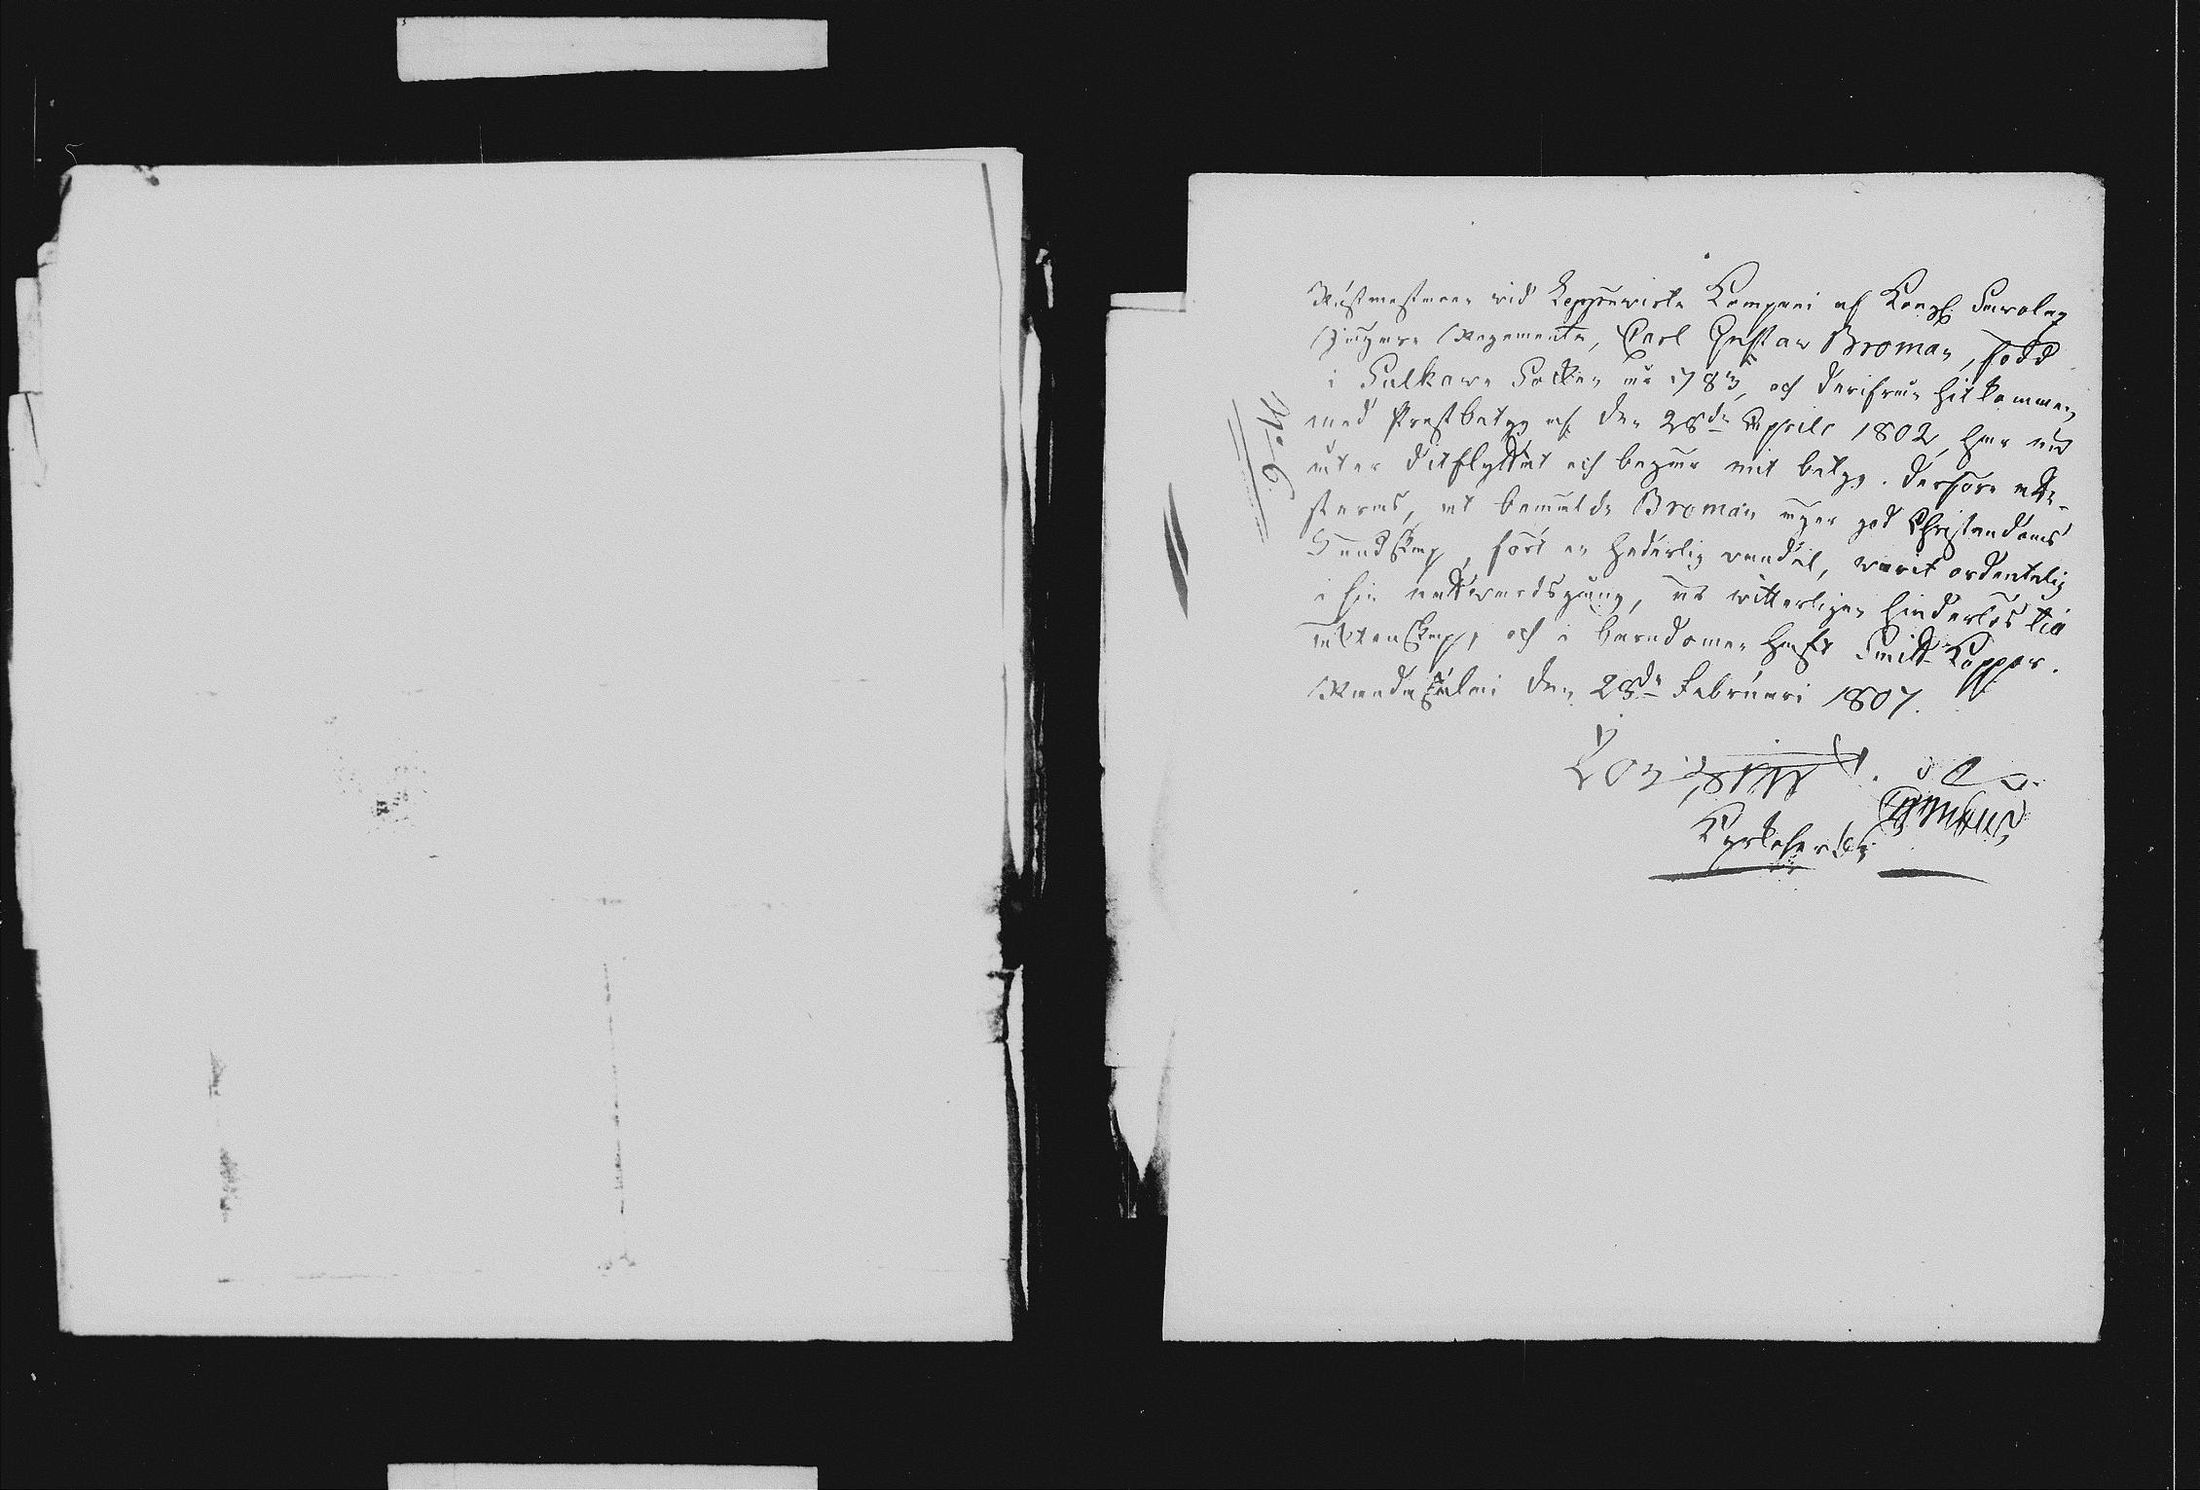 Rustmästaren wid Leppewirta Compani af Kongl. Savolax
Jägare Regemente, Carl Gustav Broman, född
i Sulkava Socken år 1783, och derifrån hit kommen
med Prestbetyg af den 28de Aprile 1802, har nu
åter ditflyttat och begär mit betyg. Derföre atte-
steras, at bemälde Broman äger god Christendoms
Kundskap, fört en hederlig vandel, warit ordentelig
i sin nattwardsgång, är witterligen hinderlös till
äktenskap, och i barndomen haft Smitt-Koppor.
Randasalmi den 28de Februari 1807.
Kyrkoherde
No 6.